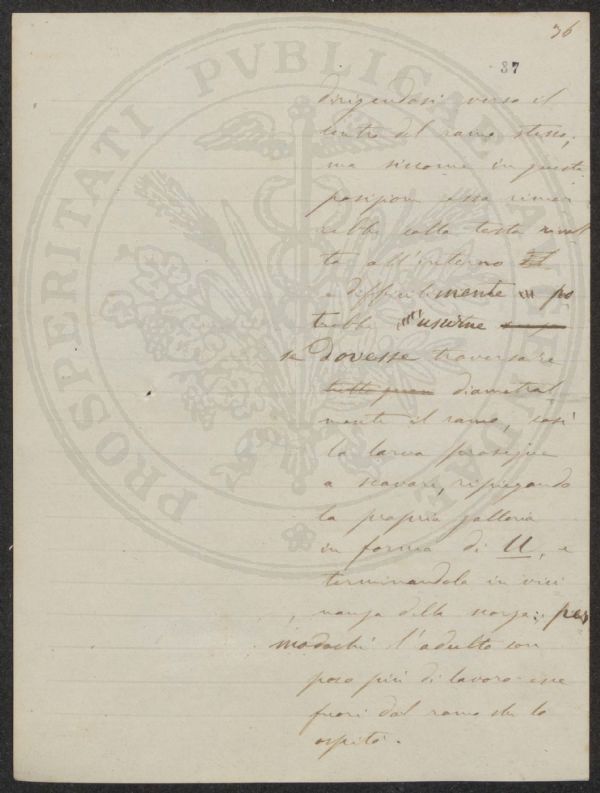 36
37
dirigendosi verso il
centro del ramo stesso,
ma siccome in questa
posizione essa rimar
rebbe colla testa rivol
ta all'interno
e difficilmente po
trebbe uscirne
se Dovesse traversare
diametral
mente il ramo, così
la larva prosegue
a scavare, ripiegando
la propria galleria
in forma di U, e
terminandola in vici
nanza della scorza: per
modochè l'adulto con
poco più di lavoro esce
fuori dal ramo che lo
ospitò.
PROSPERITATI PVBLICAE AVGENDAE